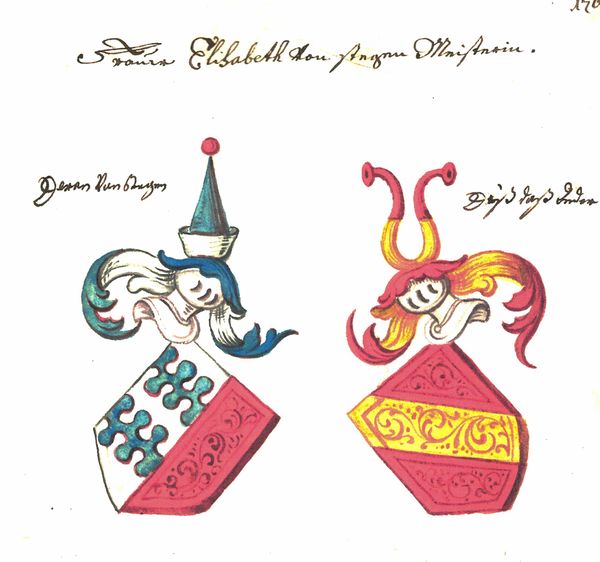 170
Frauw Elisabeth Von stegen Meisterin.
Deren Von Stegen
Dises daß Ander